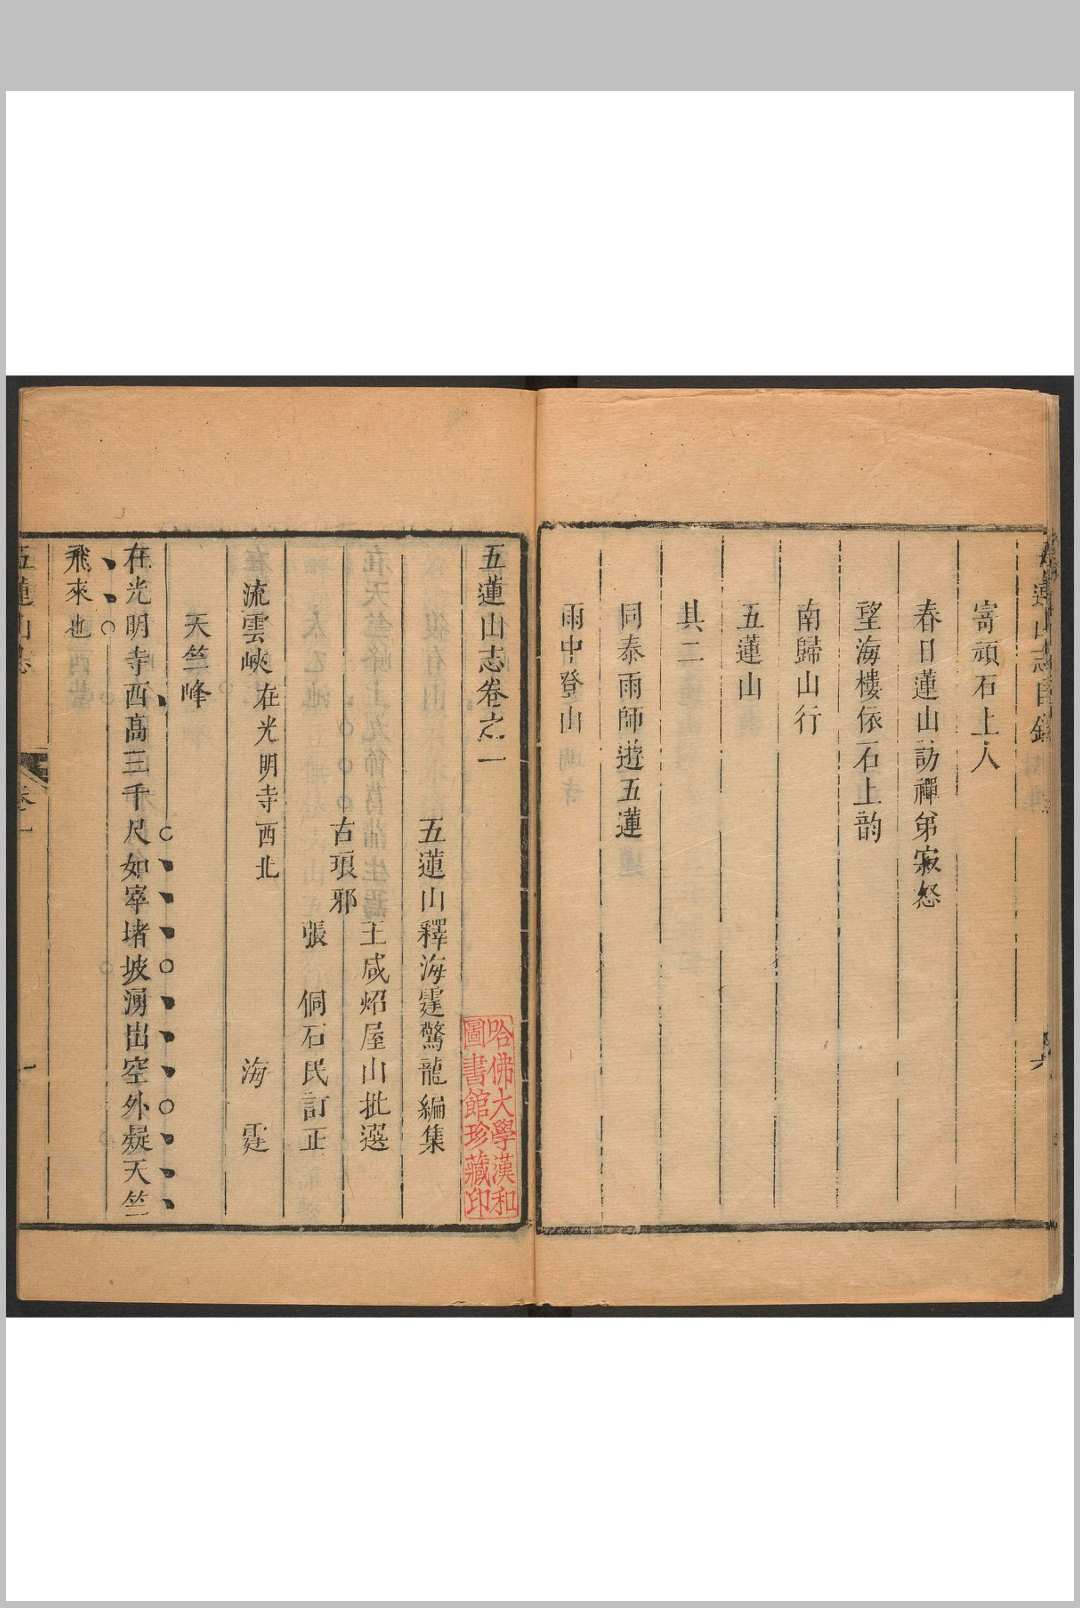 五蓮山志目錄
寄頑石上人
春日蓮山訪禪弟寂怒
望海樓依石上韵
南歸山行
五蓮山
其二
同泰雨師遊五蓮
雨中登山
五蓮山志卷之一
哈佛大學漢和
圖書館珍藏印
五蓮山釋海霆驚龍編集
古琅邪
王咸炤屋山批選
張侗石民訂正
流雲峽 在光明寺西北 海霆
天竺峰
在光明寺西高三千尺如窣堵坡湧出空外疑天竺
飛來也
五蓮山志 卷一 一